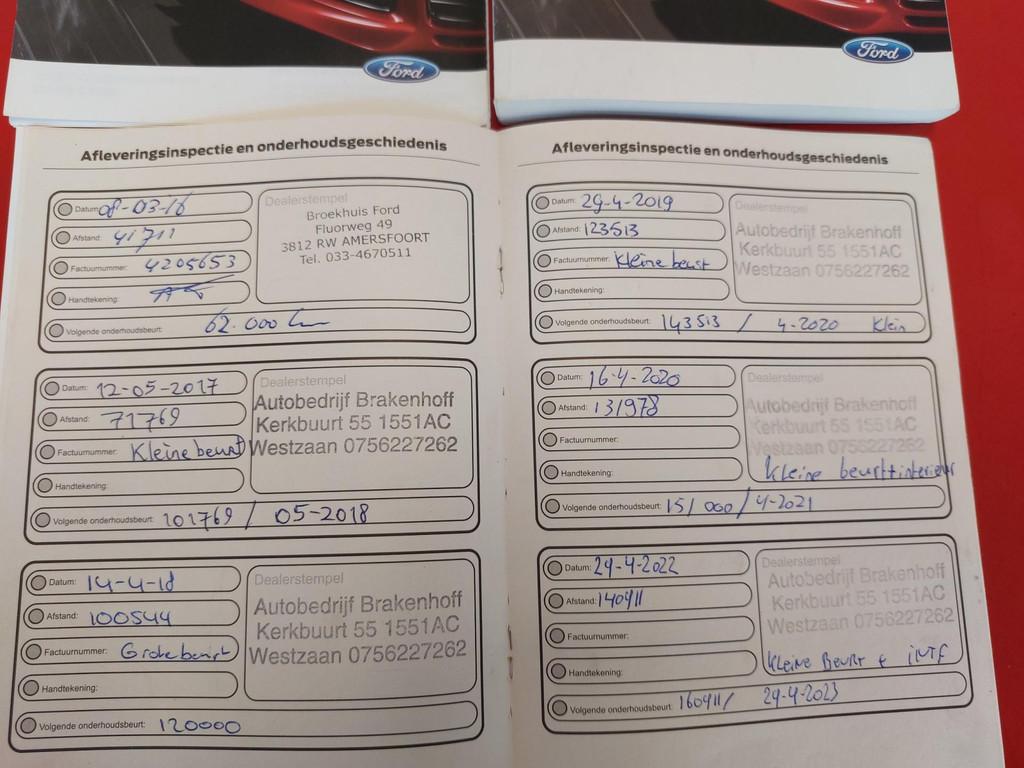 Ford
Ford
Afleveringsinspectie en onderhoudsgeschiedenis
Datum: 08-03-16
Afstand: 41711
Factuurnummer: 4205653
Handtekening:
Volgende onderhoudsbeurt: 62.000 km
Dealerstempel
Broekhuis Ford
Fluorweg 49
3812 RW AMERSFOORT
Tel. 033-4670511
Datum: 12-05-2017
Afstand: 71769
Factuurnummer: Kleine beurt
Handtekening:
Volgende onderhoudsbeurt: 101769 / 05-2018
Dealerstempel
Autobedrijf Brakenhoff
Kerkbuurt 55 1551AC
Westzaan 0756227262
Datum: 14-4-18
Afstand: 100544
Factuurnummer: Grote beurt
Handtekening:
Volgende onderhoudsbeurt: 120000
Dealerstempel
Autobedrijf Brakenhoff
Kerkbuurt 55 1551AC
Westzaan 0756227262
Afleveringsinspectie en onderhoudsgeschiedenis
Datum: 29-4-2019
Afstand: 123513
Factuurnummer: Kleine beurt
Handtekening:
Volgende onderhoudsbeurt: 143513 / 4-2020 Klein
Dealerstempel
Autobedrijf Brakenhoff
Kerkbuurt 55 1551AC
Westzaan 0756227262
Datum: 16-4-2020
Afstand: 131978
Factuurnummer:
Handtekening:
Volgende onderhoudsbeurt: 151000 / 4-2021
Dealerstempel
Autobedrijf Brakenhoff
Kerkbuurt 55 1551AC
Westzaan 0756227262
Kleine beurt+interieur
Datum: 29-4-2022
Afstand: 140411
Factuurnummer:
Handtekening:
Volgende onderhoudsbeurt: 160411/ 29-4-2023
Dealerstempel
Autobedrijf Brakenhoff
Kerkbuurt 55 1551AC
Westzaan 0756227262
Kleine Beurt + INTF